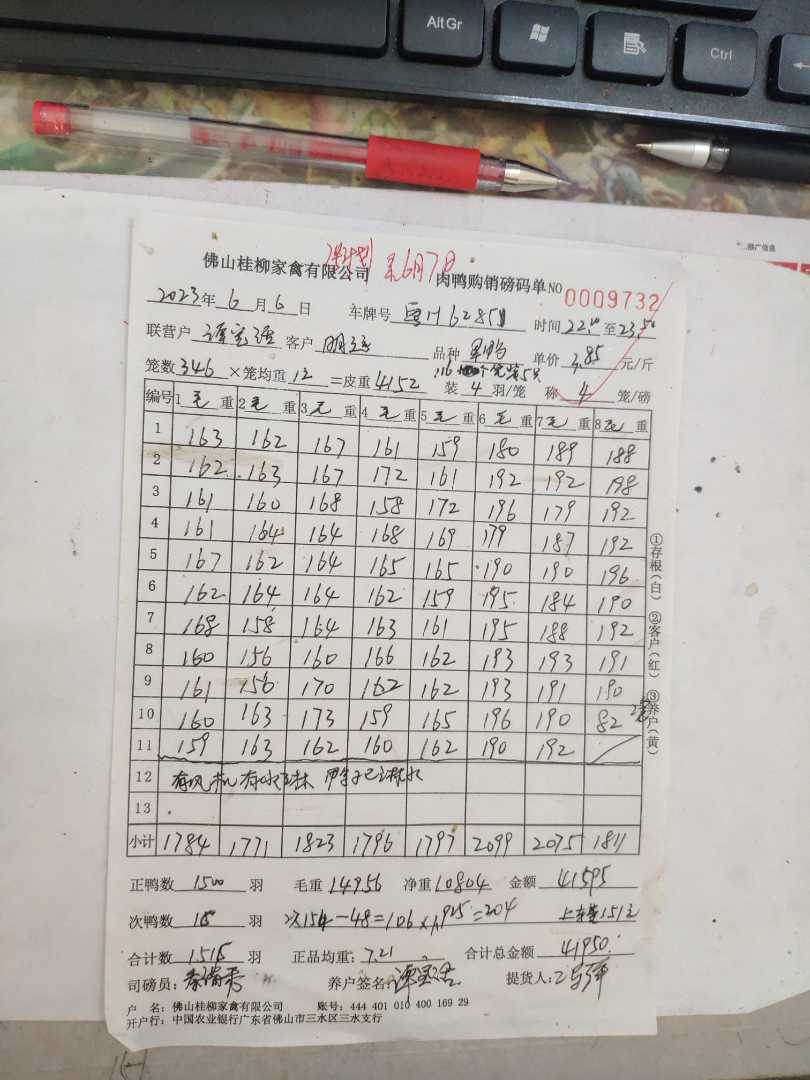 Alt Gr
Ctrl
推广信息
佛山桂柳家禽有限公司 肉鸭购销磅码单 NO 0009732
2023年6月6日 车牌号 时间 22 至 23.50
联营户 客户 品种 单价 3.85 元/斤
笼数 346 ×笼均重 12 =皮重 4152 装 4 羽/笼 称 4 笼/磅
编号 1 毛 重 2 毛 重 3 毛 重 4 毛 重 5 毛 重 6 毛 重 7 毛 重 8 毛 重
1 163 162 167 161 159 180 189 188
2 162 163 167 172 161 192 192 198
3 161 160 168 158 172 196 179 192
4 161 164 164 168 169 179 187 192
5 167 162 164 165 165 190 190 196
6 162 164 164 162 159 195 184 190
7 168 158 164 163 161 195 188 192
8 160 156 160 166 162 193 193 191
9 161 156 170 162 162 193 191 190
10 160 163 173 159 165 196 190 82
11 159 163 162 160 162 190 192
12
13
小计 1784 1771 1823 1796 1797 2099 2075 1811
正鸭数 1500 羽 毛重 14956 净重 10804 金额 41595
次鸭数 15 羽 次154-48=106×1.925=204 151元
合计数 1515 羽 正品均重: 7.21 合计总金额 41950
司磅员: 养户签名: 提货人:
户 名: 佛山桂柳家禽有限公司 账号: 444 401 010 400 169 29
开户行: 中国农业银行广东省佛山市三水区三水支行
①存根(白) ②客户(红) ③养户(黄)